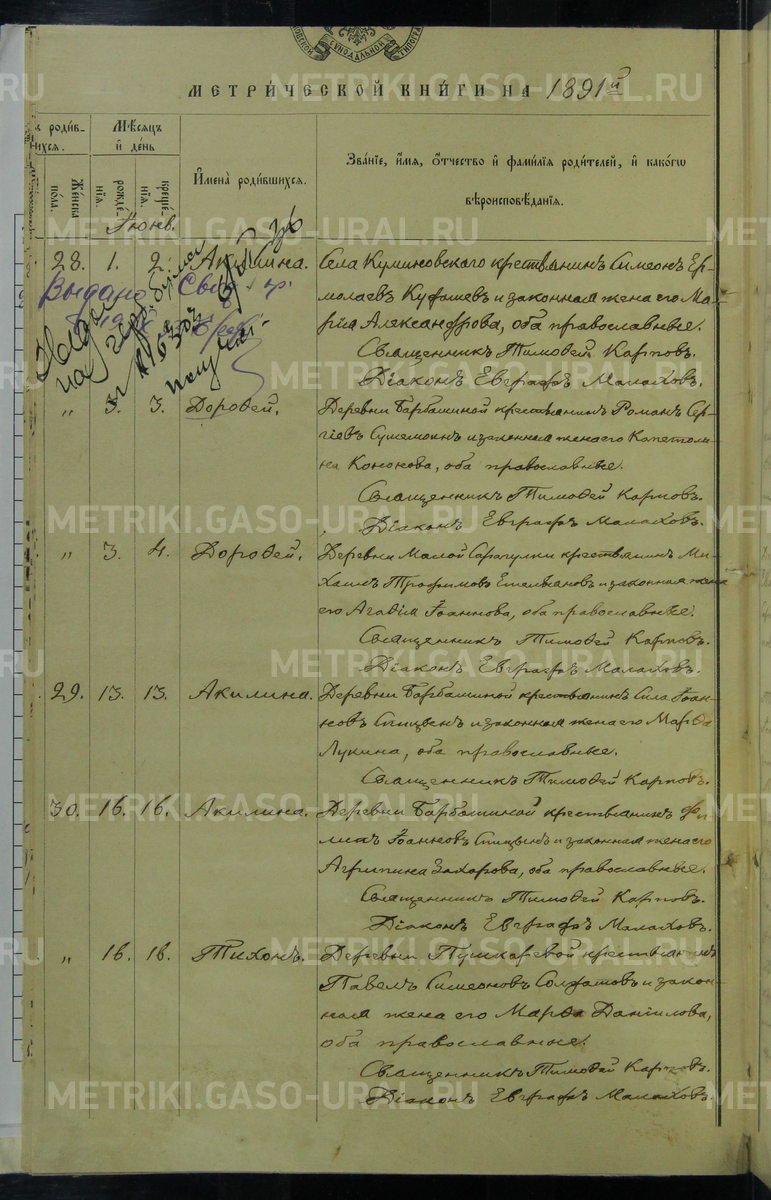 МЕТРИ́ЧЕСКОЙ КНИ́ГИ НА 1891й
родив-
шихся.
Мѣсяцъ
и́ де́нь
Же́нска
по́ла.
рожде́-
нїѧ.
креще́-
нїѧ.
И҆мена̀ роди́вшихсѧ.
Зва́нїе, и҆́мѧ, ѻ҆́тчество и҆ фами́лїѧ роди́телей, и҆ како́гѡ
вѣ́роисповѣ́данїѧ.
Іюнь.
28. 1. 2. Акилина. Села Куминовскаго крестьянинъ Симеонъ Ер-
молаевъ и законная жена его Ма-
рія Александрова, оба православные.
Выдано
Священникъ Тимофей Карповъ.
Діаконъ Евграфъ Малаховъ.
„ 3. 3. Дорофей. Деревни Барбашиной крестьянинъ Романъ Сер-
гіевъ и законная жена его Капетоли-
на Кононова, оба православные.
Священникъ Тимофей Карповъ.
Діаконъ Евграфъ Малаховъ.
„ 3. 4. Дорофей. Деревни Малой Сарагулки крестьянинъ Ми-
хаилъ Трофимовъ Емельяновъ и законная жена
его Агафія Іоаннова, оба православные.
Священникъ Тимофей Карповъ.
Діаконъ Евграфъ Малаховъ.
29. 13. 13. Акилина. Деревни Барбашиной крестьянинъ Сила Іоан-
новъ Спицынъ и законная жена его Марфа
Лукина, оба православные.
Священникъ Тимофей Карповъ.
30. 16. 16. Акилина. Деревни Барбашиной крестьянинъ Фи-
липъ Іоанновъ Спицынъ и законная жена его
Агрипина Захарова, оба православные.
Священникъ Тимофей Карповъ.
Діаконъ Евграфъ Малаховъ.
„ 16. 16. Тихонъ. Деревни Пушкаревой крестьянинъ
Павелъ Симеоновъ Солдатовъ и закон-
ная жена его Марфа Даніилова,
оба православные.
Священникъ Тимофей Карповъ.
Діаконъ Евграфъ Малаховъ.
METRIKI.GASO-URAL.RU